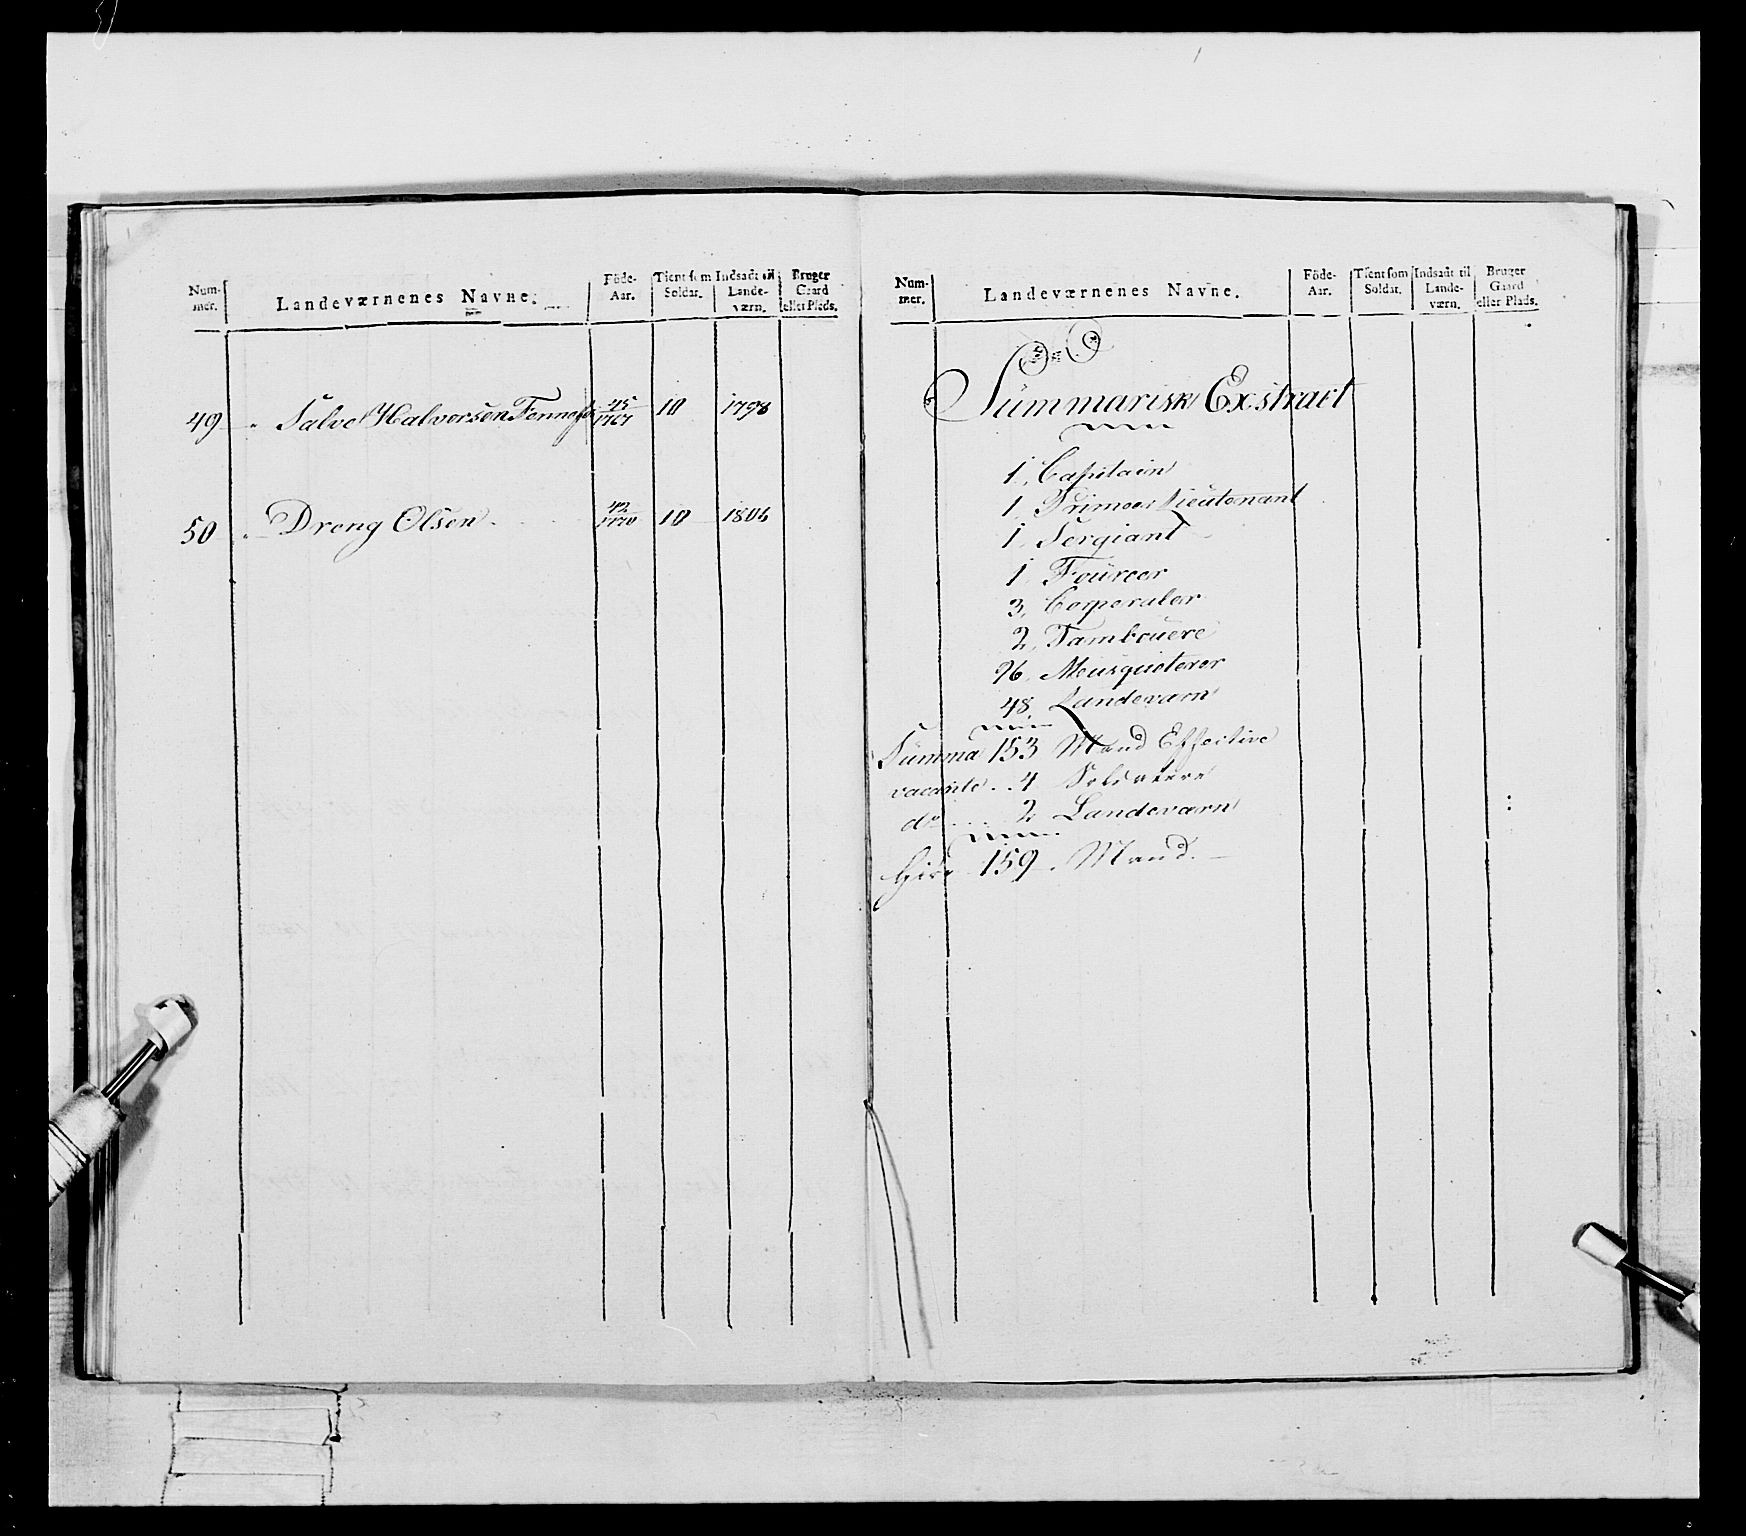 Num-
mer.
Landeværnenes Navne.
Föde-
Aar.
Tient som
Soldat.
Indsadt til
Lande-
værn.
Bruger
Gaard
eller Plads.
49 Salve Halvorsen 45/1767 10 1798
50 Dreng Olsen 42/1770 10 1806
Num-
mer.
Landeværnenes Navne.
Föde-
Aar.
Tient som
Soldat.
Indsadt til
Lande-
værn.
Bruger
Gaard
eller Plads.
Summarisk Exstract
1, Capitain
1, Primeer Lieutenant
1, Sergiant
1, Foureer
3, Corporaler
2, Tambouere
96, Meusqueterer
48, Landeværn
Summa 153 Mand Effective
vacante . . 4 Soldatere
do .... 2 Landeværn
159 . Mand.